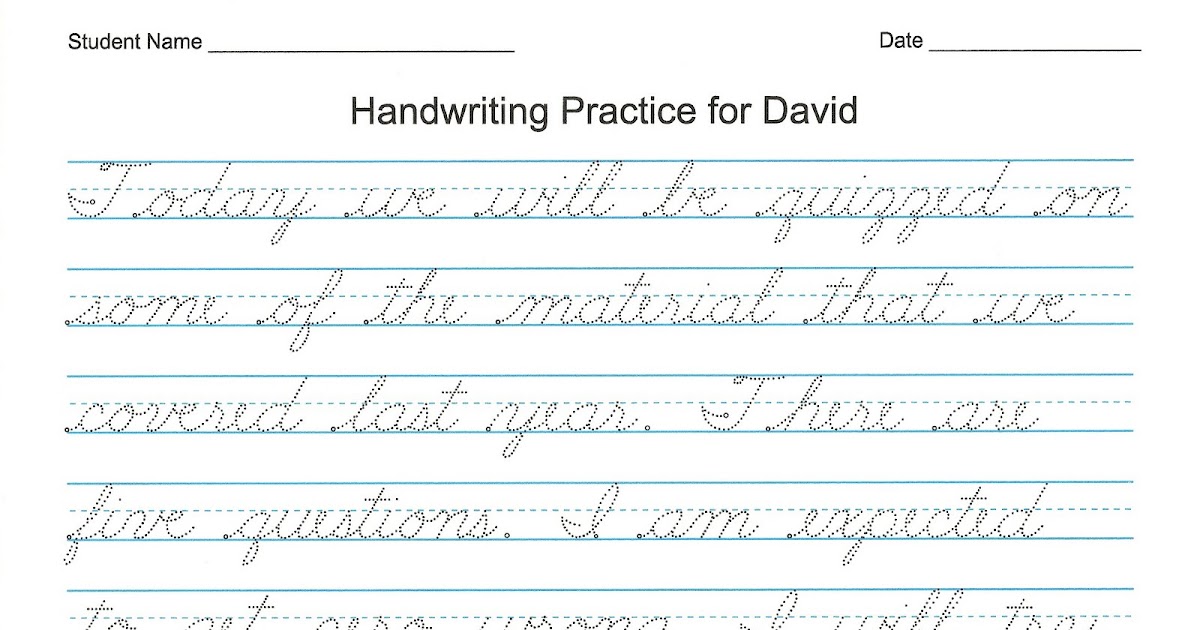 Student Name
Date
Handwriting Practice for David
Today we will be quizzed on
some of the material that we
covered last year. There are
five questions. I am expected
to get zero wrong. I will try